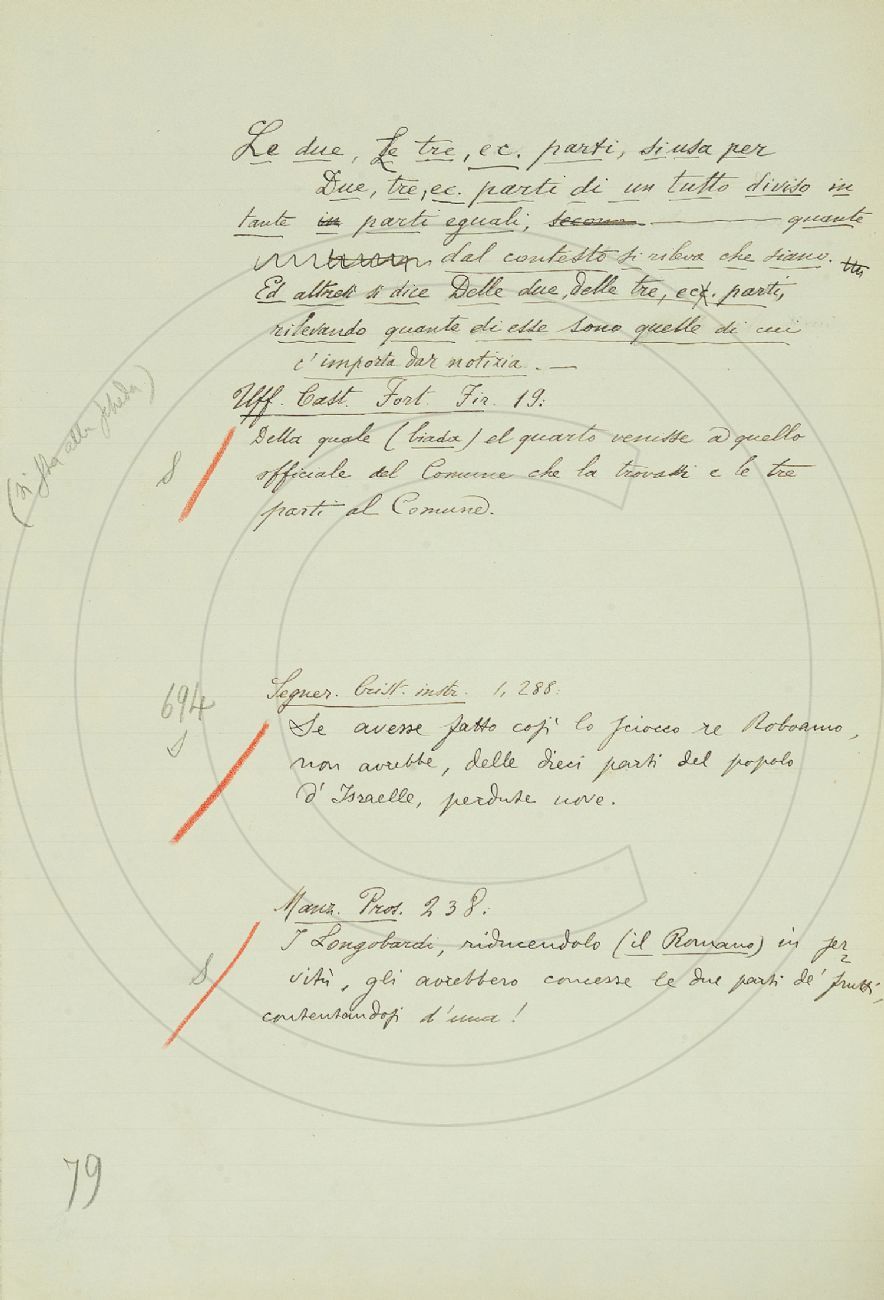 Le due, Le tre, ec. parti, si usa per
Due, tre, ec. parti di un tutto diviso in
tante in parti eguali, quante
dal contesto si rileva che siano.
Ed altresì si dice Delle due, delle tre, ec. parti,
rilevando quante di esse sono quelle di cui
c'importa dar notizia. —
Uff. Cast. Fort. Fir. 19:
Della quale (biada) el quarto venisse a quello
officiale del Comune che la trovassi e le tre
parti al Comune.
(si sta alla scheda)
S
694
S
Segner. Crist. instr. 1, 288:
Se avesse fatto così lo sciocco re Roboamo,
non avrebbe, delle dieci parti del popolo
d'Israelle, perdute nove.
Manz. Pros. 238:
I Longobardi, riducendolo (il Romano) in ser
S
vitù, gli avrebbero concesse le due parti de' frutti,
contentandosi d'una!
79